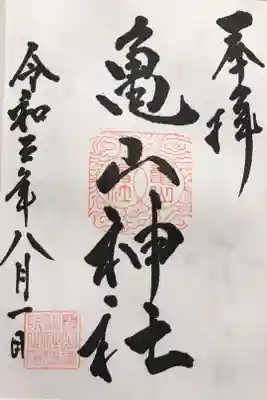 奉拝
亀山神社
令和三年八月一日